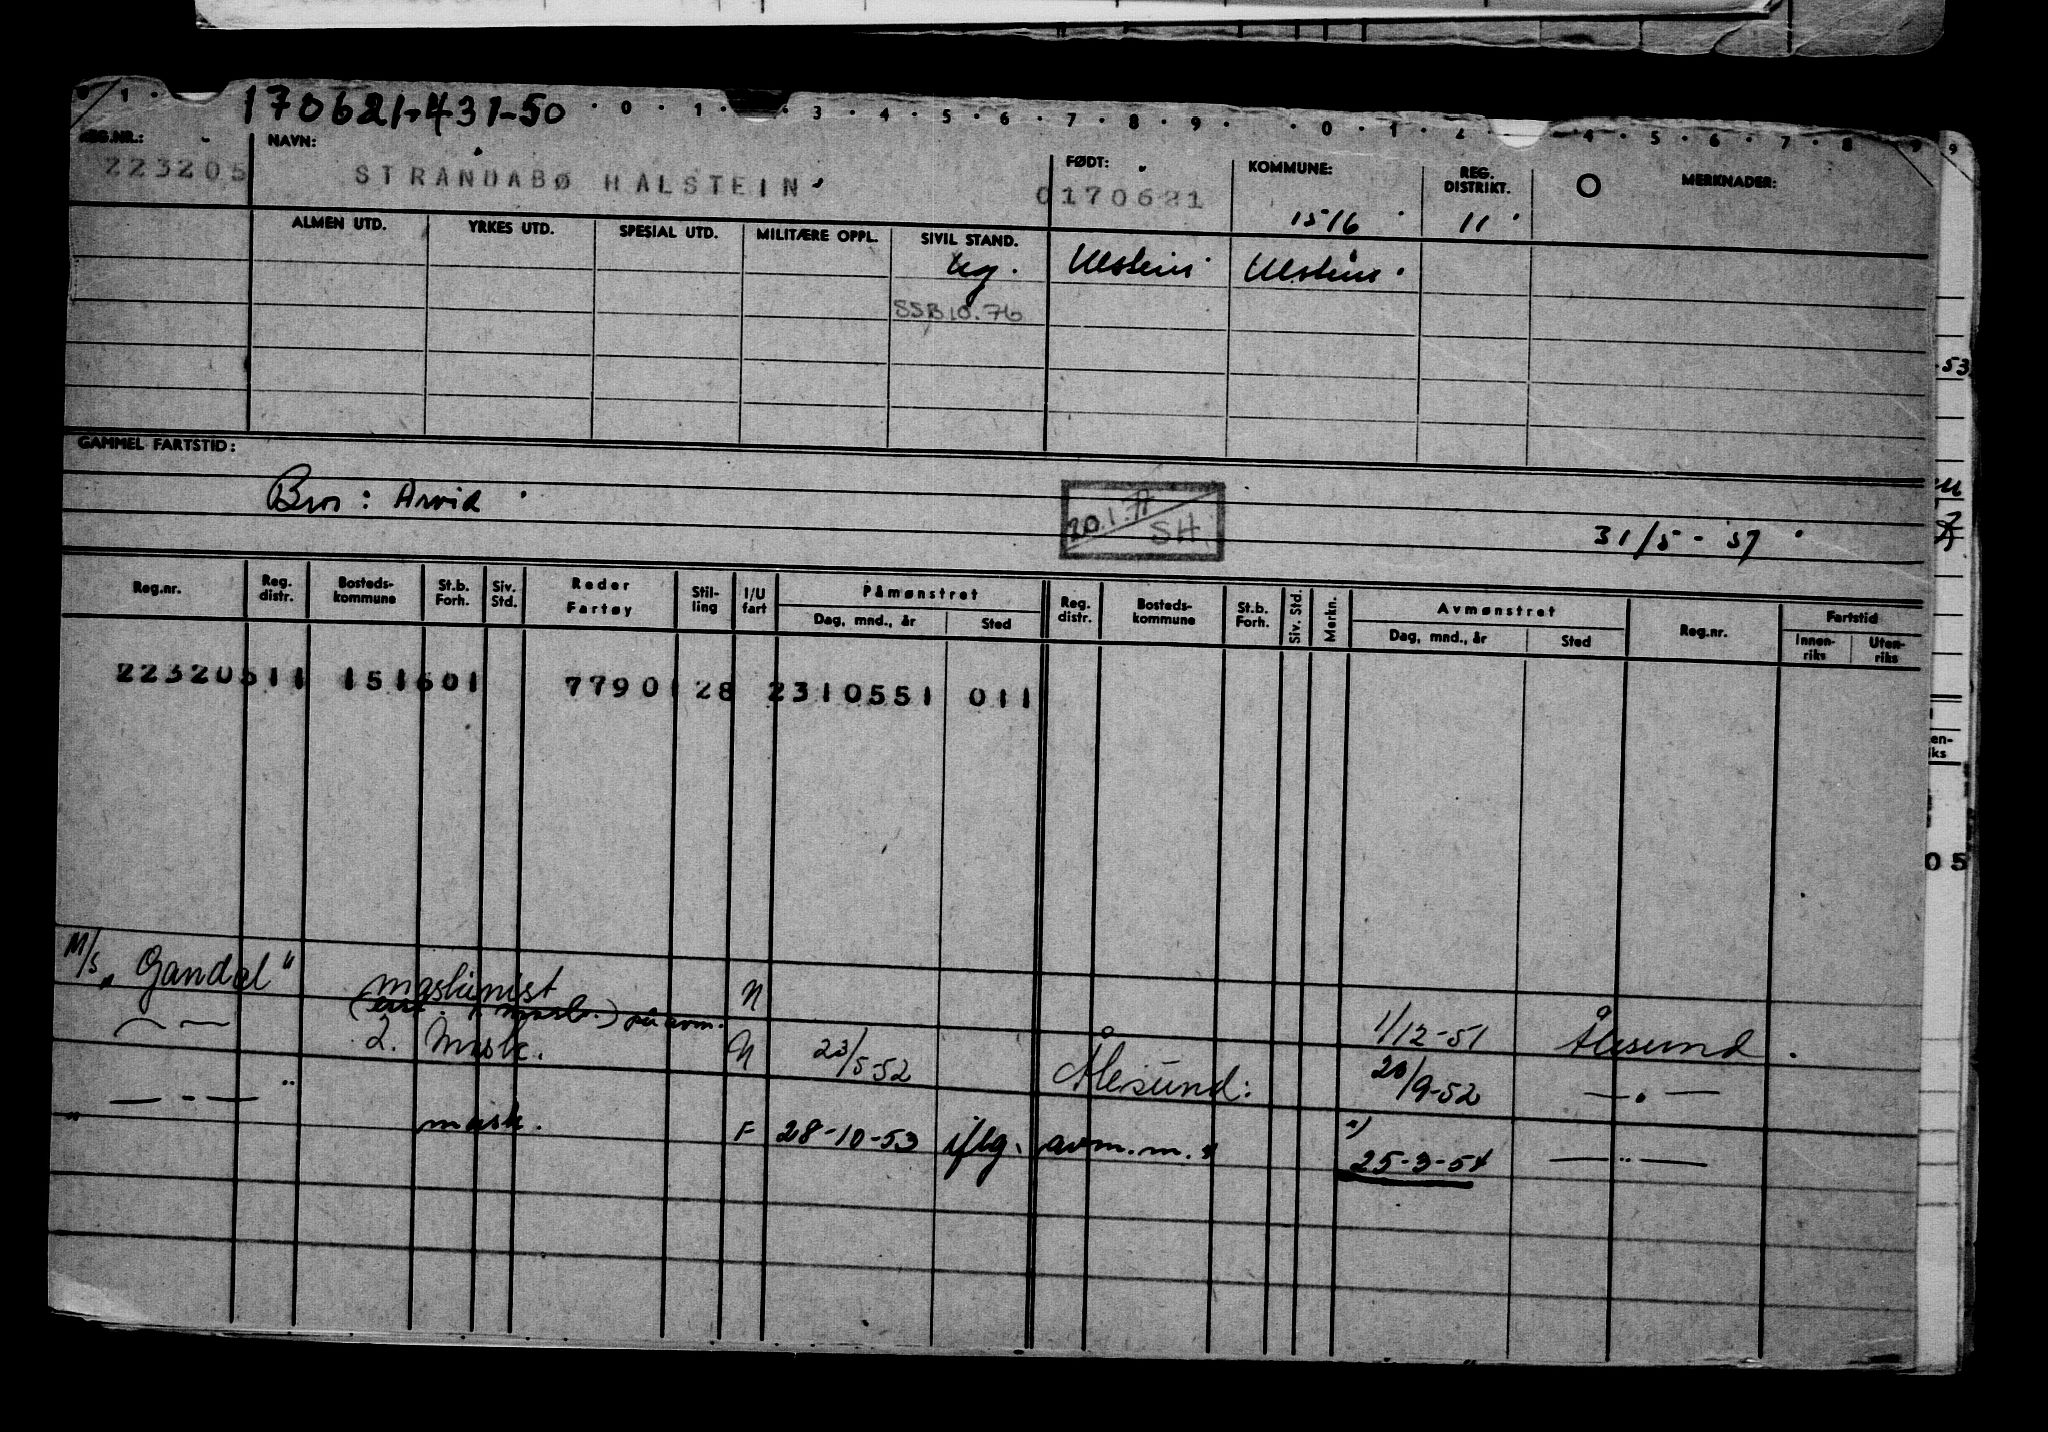 170621-431-50
0 · 1 · · 3 · 4 · 5 · 6 · 7 · 8 · 9 · · 0 · 1 · 2 · 4 · 5 · 6 · 7 · 8 · 9
REG.NR.: NAVN: FØDT: KOMMUNE: REG. DISTRIKT. O MERKNADER:
223205 STRANDABØ HALSTEIN 0170621 1516 11
ALMEN UTD. YRKES UTD. SPESIAL UTD. MILITÆRE OPPL. SIVIL STAND.
Ug. Ulstein Ulstein
SSB 10.76
GAMMEL FARTSTID:
Bror: Arvid
20.1.77 SH
31/5-57
Reg.nr. Reg. distr. Bosteds-kommune St.b. Forh. Siv. Std. Reder Fartøy Stil-ling I/U fart Påmønstret Dag, mnd., år Sted Reg. distr. Bosteds-kommune St.b. Forh. Siv. Std. Merkn. Avmønstret Dag, mnd., år Sted Reg.nr. Fartstid Innen-riks Uten-riks
22320511 151601 7790128 2310551 011
M/S "Gandal" maskinist N 1/12-51 Ålesund.
( mask.) på avm.
— — 2. Mask. N 23/5-52 Ålesund: 20/9-52 — " —
— " — mask. F 28-10-53 iflg. avm.m. 25-3-54 — " —